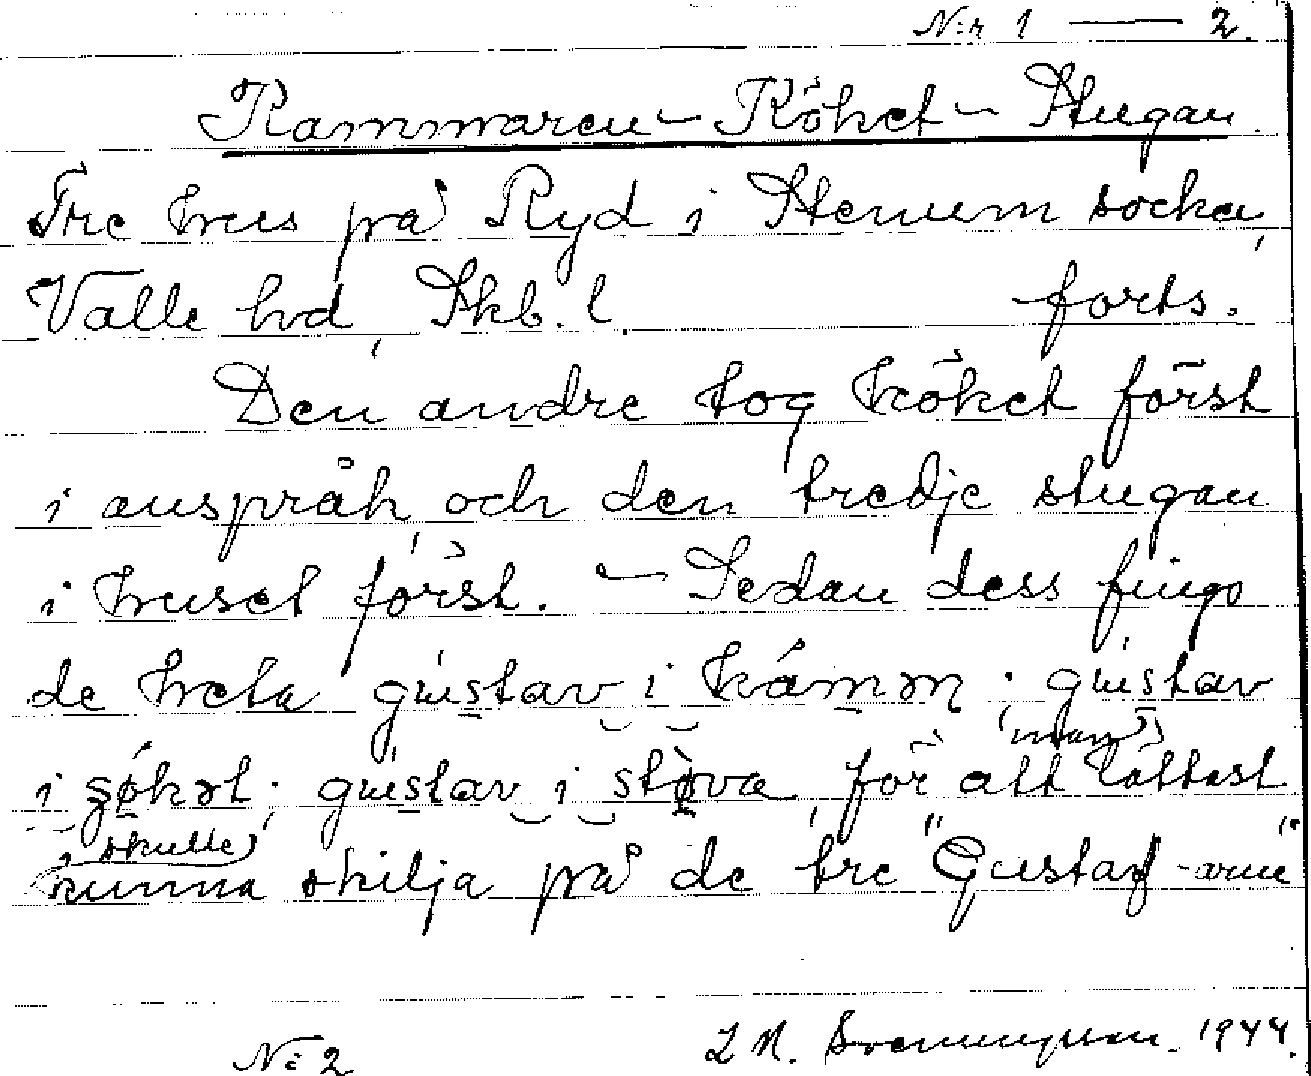 N:r 1 — 2.
Kammaren - Köket - Stugan
Tre hus på Ryd i Stenum socken,
Valle hd, Skb. l. forts.
Den andre tog köket först
i anspråk, och den tredje stugan
i huset först. - Sedan dess fingo
de heta gústav i kámm; gústav
i ɕøkət; gústav i stòva, för att (man) lättast
(skulle) kunna skilja på de tre "Gustaf-arne"
N:o 2 L M. Svenungsson. 1944.